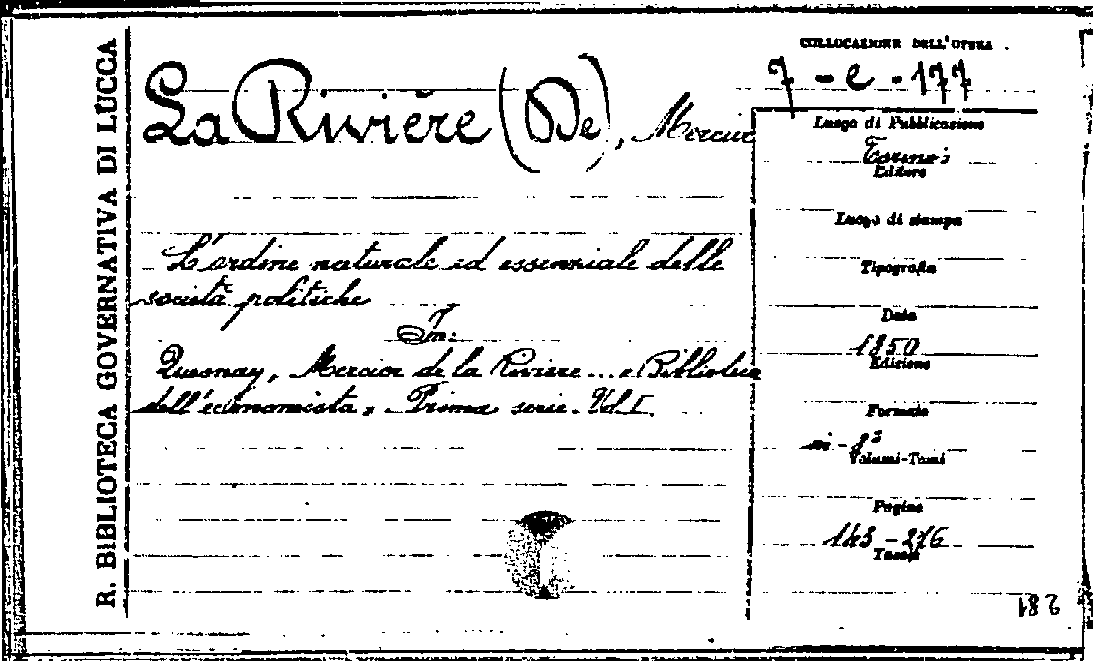 R. BIBLIOTECA GOVERNATIVA DI LUCCA
La Rivière (De), Mercier
L'ordine naturale ed essenziale delle
società politiche
In:
Quesnay, Mercier de la Riviere... "Biblioteca
dell'economista" Prima serie. Vol I.
COLLOCAZIONE DELL'OPERA
7 - e - 177
Luogo di Pubblicazione
Torino
Editore
Luogo di stampa
Tipografia
Data
1850
Edizione
Formato
in-8°
Volumi-Tomi
Pagine
143-276
Tavole
182